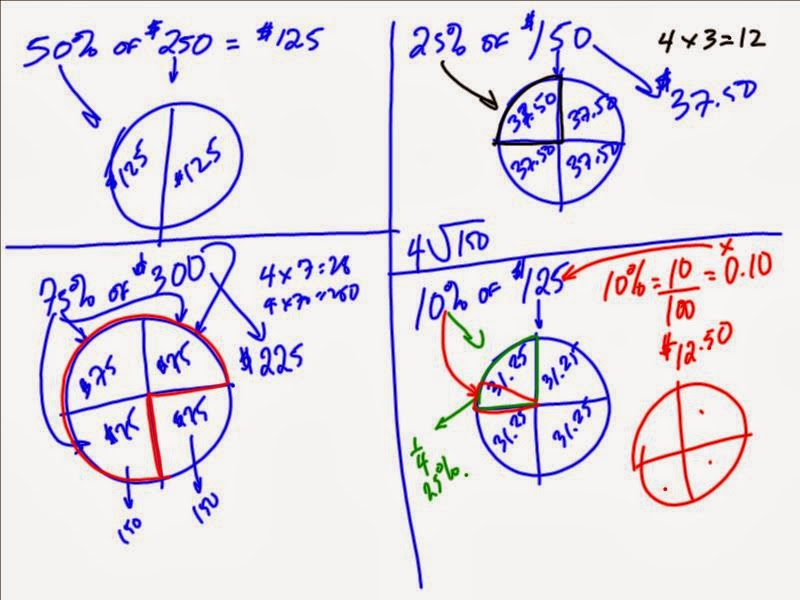 50% of $250 = $125
$125
$125
25% of $150
4 x 3 = 12
$37.50
37.50
37.50
37.50
37.50
4√150
75% of $300
4 x 7 = 28
4 x 70 = 280
$225
$75
$75
$75
$75
150
150
10% of $125
10% = 10/100 = 0.10
x
$12.50
31.25
31.25
31.25
31.25
1/4
25%.